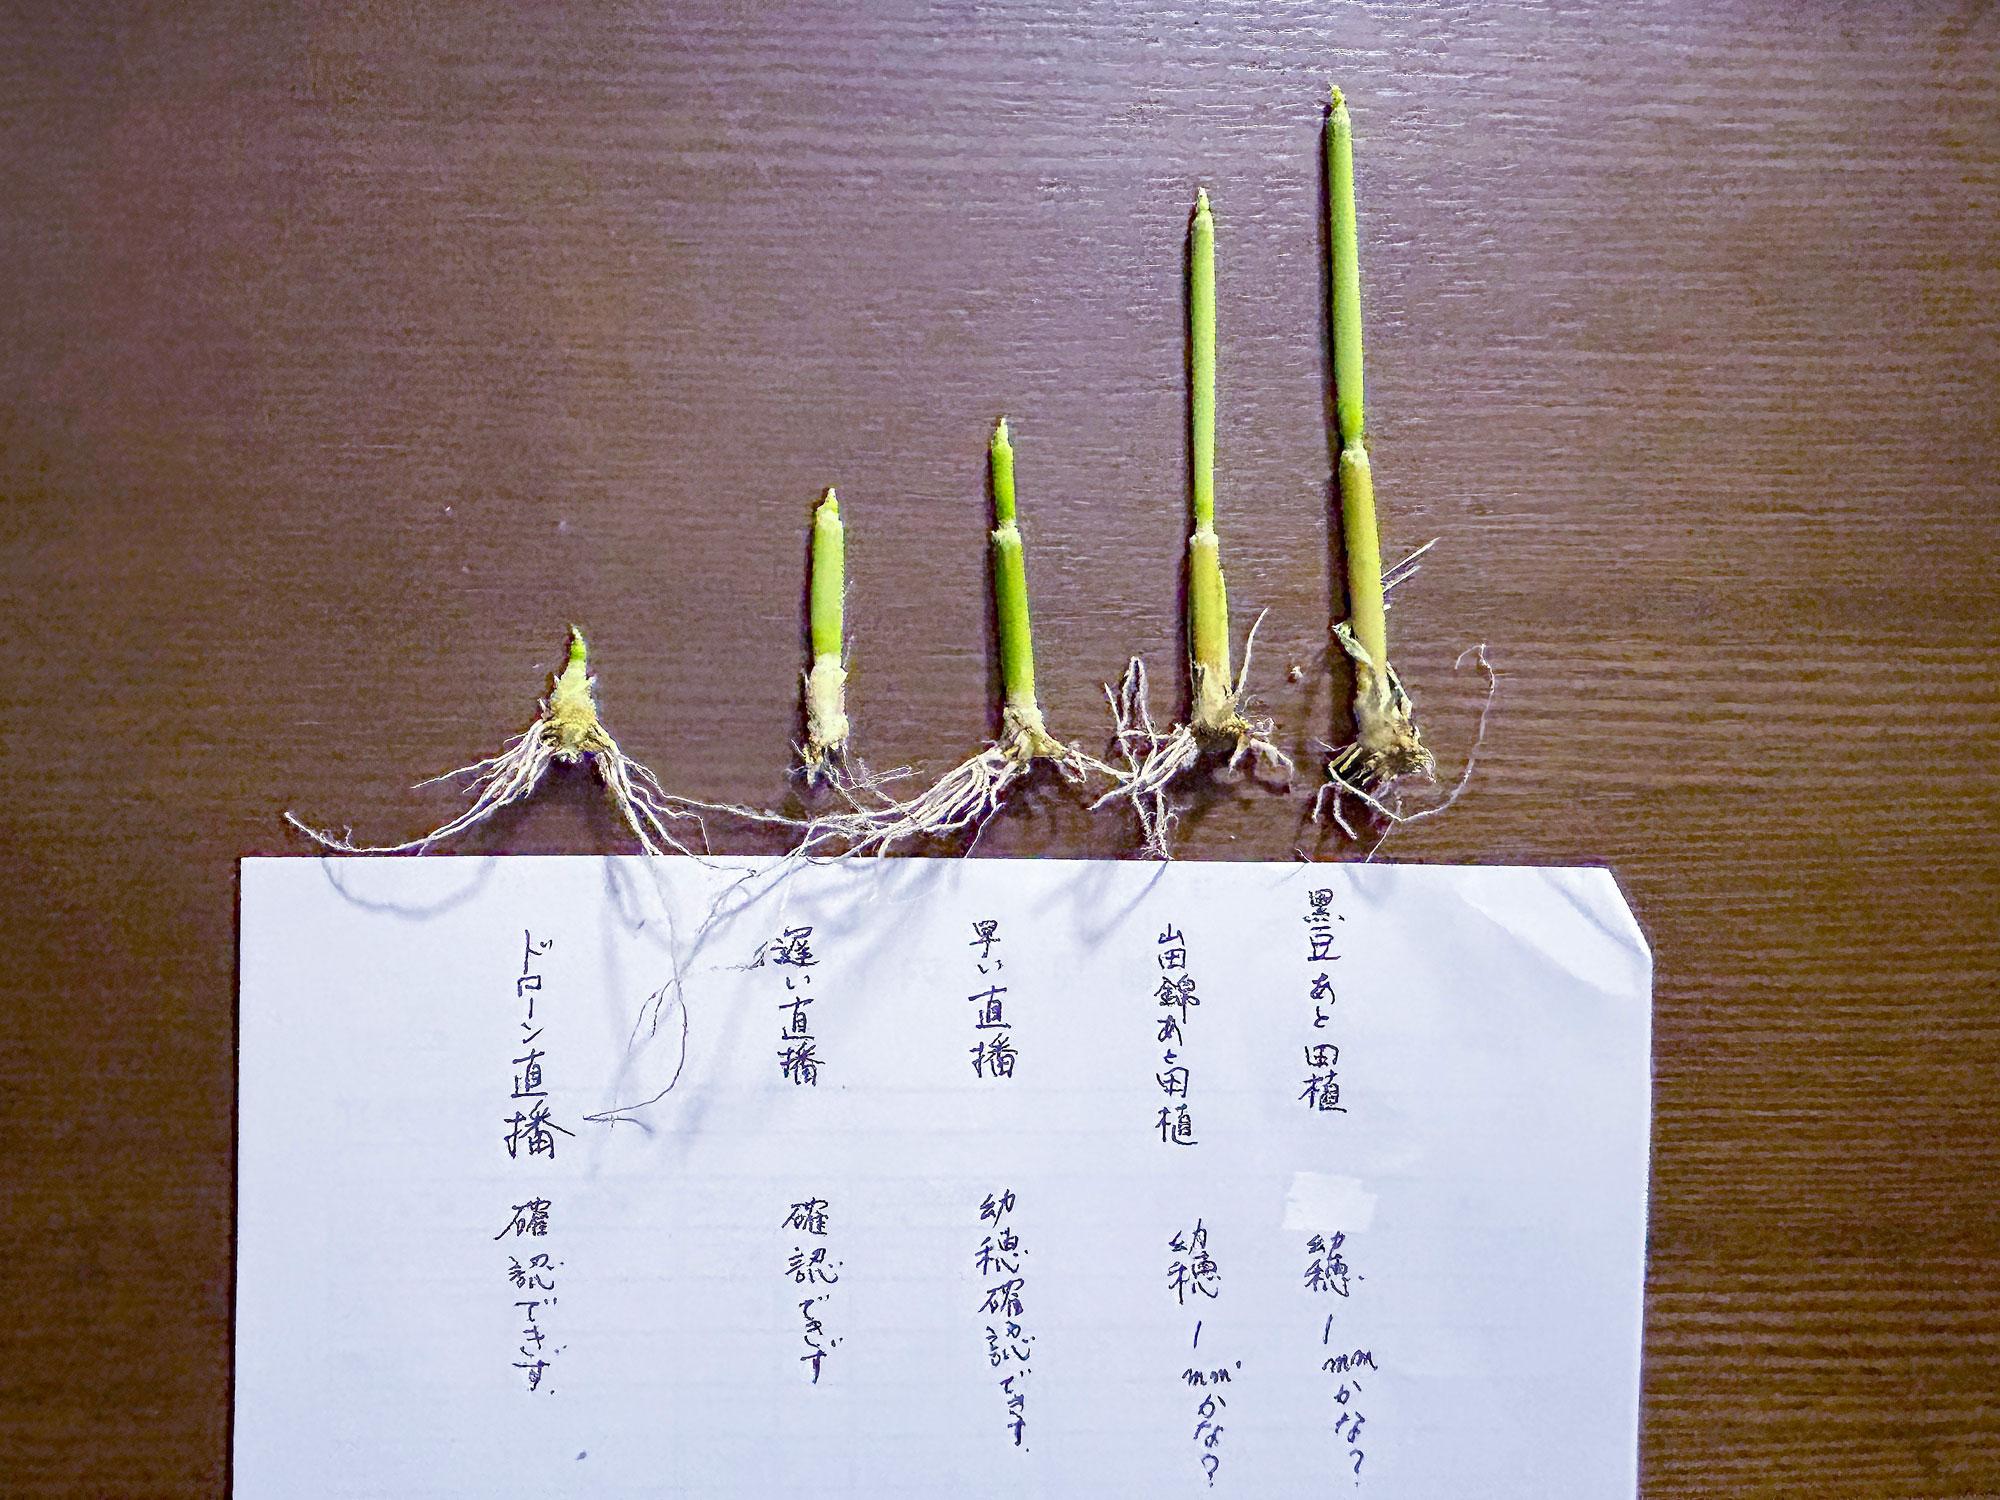 黒豆あと田植 幼穂1mmかな?
山田錦あと田植 幼穂1mmかな?
早い直播 幼穂確認できず.
遅い直播 確認できず
ドローン直播 確認できず.